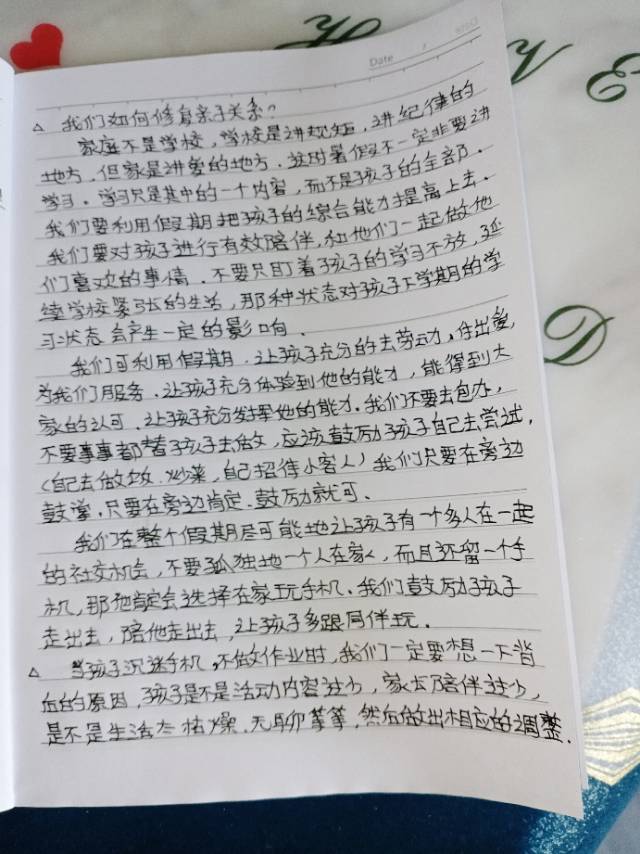 Date
△ 我们如何修复亲子关系?
家庭不是学校,学校是讲规矩,讲纪律的
地方.但家是讲爱的地方.放暑假不一定非要讲
学习.学习只是其中的一个内容,而不是孩子的全部.
我们要利用假期把孩子的综合能才提高上去.
我们要对孩子进行有效陪伴,和他们一起做他
们喜欢的事情.不要只盯着孩子的学习不放,延
续学校紧张的生活,那种状态对孩子下学期的学
习状态会产生一定的影响.
我们可利用假期,让孩子充分的去劳动,付出爱,
为我们服务.让孩子充分体验到他的能才,能得到大
家的认可.让孩子充分发挥他的能才.我们不要去包办,
不要事事都替孩子去做,应该鼓励孩子自己去尝试,
(自己去做饭.炒菜,自己招待小客人)我们只要在旁边
鼓掌,只要在旁边肯定.鼓励就可、
我们在整个假期尽可能地让孩子有一个多人在一起
的社交机会,不要孤独地一个人在家,而且还留一个手
机,那他肯定会选择在家玩手机.我们鼓励孩子
走出去,陪他走出去,让孩子多跟同伴玩.
△ 当孩子沉迷手机,不做作业时,我们一定要想一下背
后的原因,孩子是不是活动内容过少,家长陪伴过少,
是不是生活太枯燥.无聊等等,然后做出相应的调整.